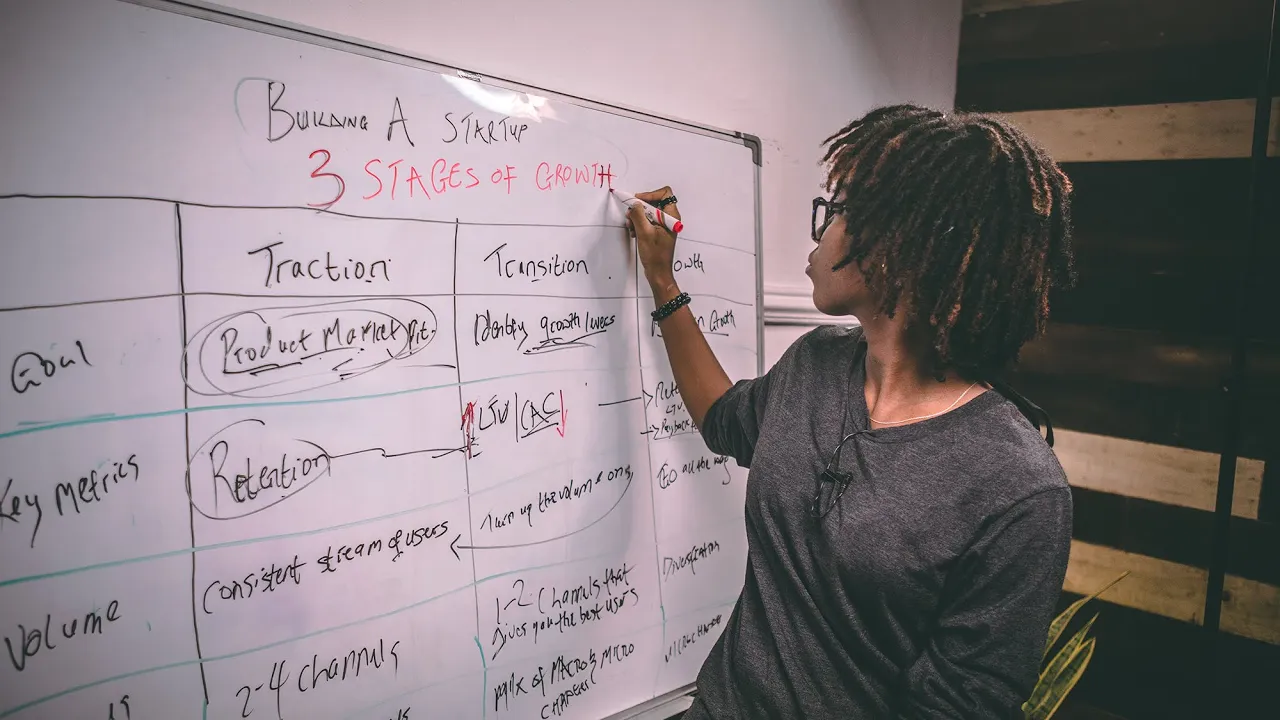 BUILDING A STARTUP
3 STAGES OF GROWTH
Traction
Transition
owth
Goal
Product Market Fit.
Identify growth levers
Growth
Key Metrics
Retention
LTV | CAC
Rete
LTV
Payback
Volume
Consistent stream of users
Turn up the volume
Go all the way
2-4 channels
1-2 channels that
gives you the best users
Diversification
MIX OF MACRO & MICRO